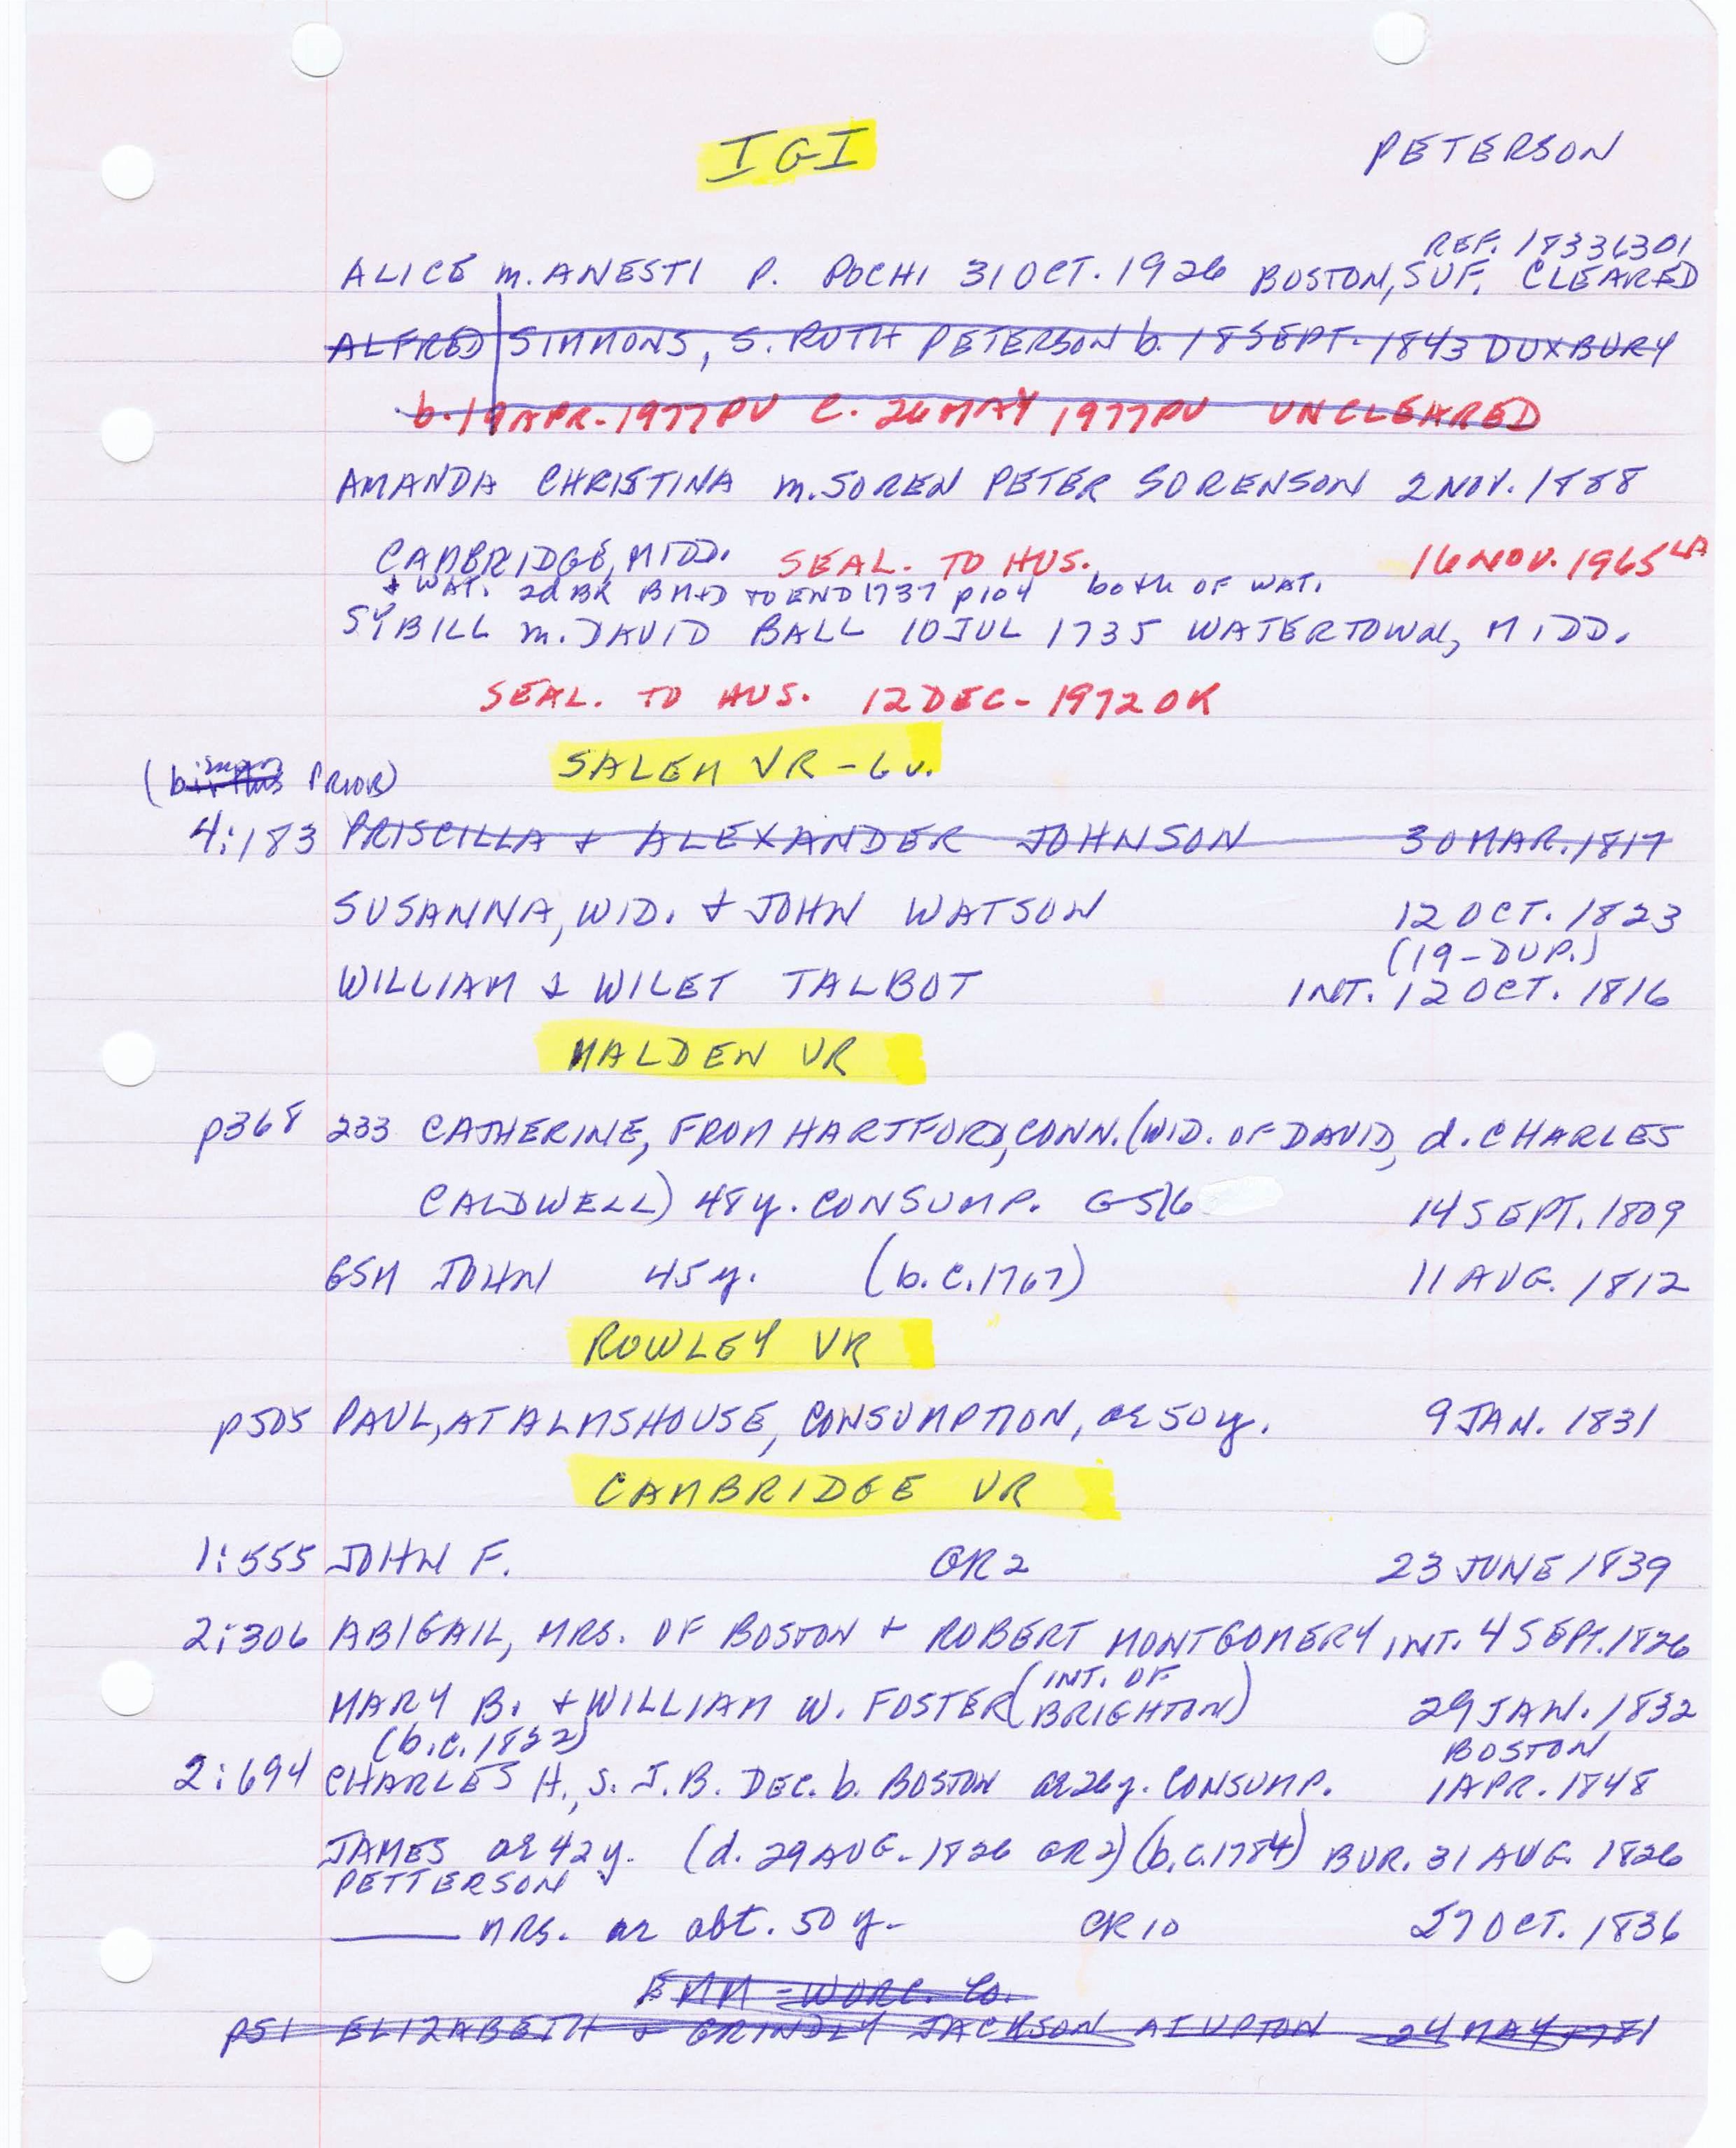 IGI
PETERSON
REF. 18336301
ALICE m. ANESTI P. POCHI 31 OCT. 1926 BOSTON, SUF. CLEARED
ALFRED SIMMONS, S. RUTH PETERSON b. 18 SEPT. 1843 DUXBURY
b. 19 APR. 1977 PV C. 26 MAY 1977 PV UNCLEARED
AMANDA CHRISTINA m. SOREN PETER SORENSON 2 NOV. 1888
CAMBRIDGE, MIDD. SEAL. TO HUS. 16 NOV. 1965 LA
+ WAT. 2d BK BM+D TO END 1737 p104 both OF WAT.
SYBILL m. DAVID BALL 10 JUL 1735 WATERTOWN, MIDD.
SEAL. TO HUS. 12 DEC. 1972 OK
SALEM VR - 6 v.
(births PRIOR)
4:183 PRISCILLA + ALEXANDER JOHNSON 30 MAR. 1817
SUSANNA, WID. + JOHN WATSON 12 OCT. 1823
(19-DUP.)
WILLIAM & WILET TALBOT INT. 12 OCT. 1816
MALDEN VR
p368 233 CATHERINE, FROM HARTFORD, CONN. (WID. OF DAVID, d. CHARLES
CALDWELL) 48 y. CONSUMP. G516 14 SEPT. 1809
GSM JOHN 45 y. (b.c. 1767) 11 AUG. 1812
ROWLEY VR
p505 PAUL, AT ALMSHOUSE, CONSUMPTION, ae 50 y. 9 JAN. 1831
CAMBRIDGE VR
1:555 JOHN F. GR 2 23 JUNE 1839
2:306 ABIGAIL, MRS. OF BOSTON + ROBERT MONTGOMERY, INT. 4 SEPT. 1826
MARY B. + WILLIAM W. FOSTER (INT. OF BRIGHTON) 29 JAN. 1832
(b.c. 1822) BOSTON
2:694 CHARLES H., S. J. B. DEC. b. BOSTON ae 26 y. CONSUMP. 1 APR. 1848
JAMES ae 42 y. (d. 29 AUG. 1826 GR 2) (b.c. 1784) BUR. 31 AUG. 1826
PETTERSON
MRS. ae abt. 50 y. CR 10 27 OCT. 1836
EMM - WORC. Co.
p51 ELIZABETH & GRINDLY JACKSON AT UPTON 24 MAY 1781